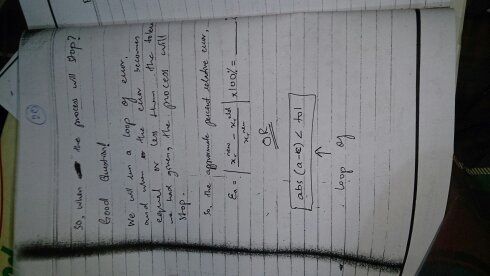 So, when the process will stop?
Good Question!
We will run a loop of error.
and when the error becomes
equal or less than the toler
we had given, the process will
stop.
So, the approximate percent relative error,
Ea = | xr^new - xr^old / xr^new | x100% =
OR
abs(a-b) < tol
↑
loop of